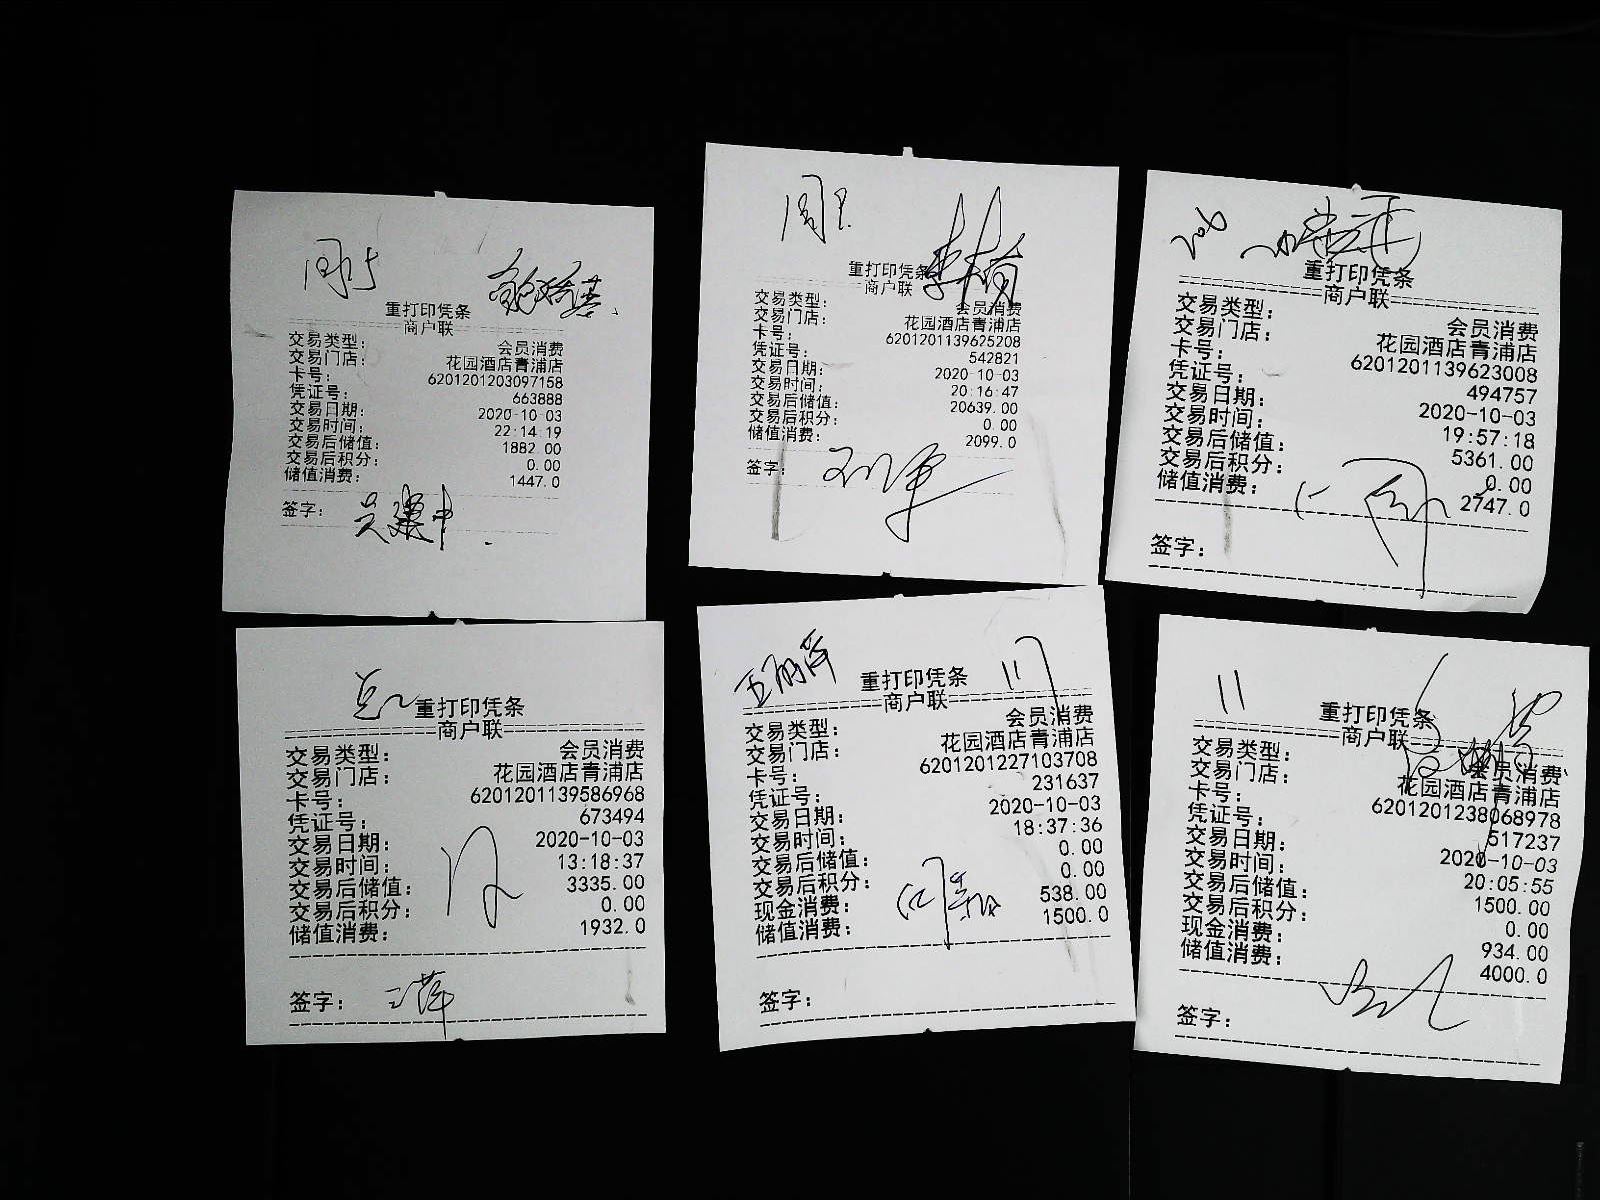 重打印凭条
商户联
交易类型： 会员消费
交易门店： 花园酒店青浦店
卡号： 6201201203097158
凭证号： 663888
交易日期： 2020-10-03
交易时间： 22:14:19
交易后储值： 1882.00
交易后积分： 0.00
储值消费： 1447.0
签字： 吴建中
重打印凭条
商户联
交易类型： 会员消费
交易门店： 花园酒店青浦店
卡号： 6201201139625208
凭证号： 542821
交易日期： 2020-10-03
交易时间： 20:16:47
交易后储值： 20639.00
交易后积分： 0.00
储值消费： 2099.0
签字： 刘军
206
重打印凭条
商户联
交易类型： 会员消费
交易门店： 花园酒店青浦店
卡号： 6201201139623008
凭证号： 494757
交易日期： 2020-10-03
交易时间： 19:57:18
交易后储值： 5361.00
交易后积分： 0.00
储值消费： 2747.0
签字：
重打印凭条
商户联
交易类型： 会员消费
交易门店： 花园酒店青浦店
卡号： 6201201139586968
凭证号： 673494
交易日期： 2020-10-03
交易时间： 13:18:37
交易后储值： 3335.00
交易后积分： 0.00
储值消费： 1932.0
签字：
重打印凭条
商户联
交易类型： 会员消费
交易门店： 花园酒店青浦店
卡号： 6201201227103708
凭证号： 231637
交易日期： 2020-10-03
交易时间： 18:37:36
交易后储值： 0.00
交易后积分： 0.00
现金消费： 538.00
储值消费： 1500.0
签字：
重打印凭条
商户联
交易类型： 会员消费
交易门店： 花园酒店青浦店
卡号： 6201201238068978
凭证号： 517237
交易日期： 2020-10-03
交易时间： 20:05:55
交易后储值： 1500.00
交易后积分： 0.00
现金消费： 934.00
储值消费： 4000.0
签字：